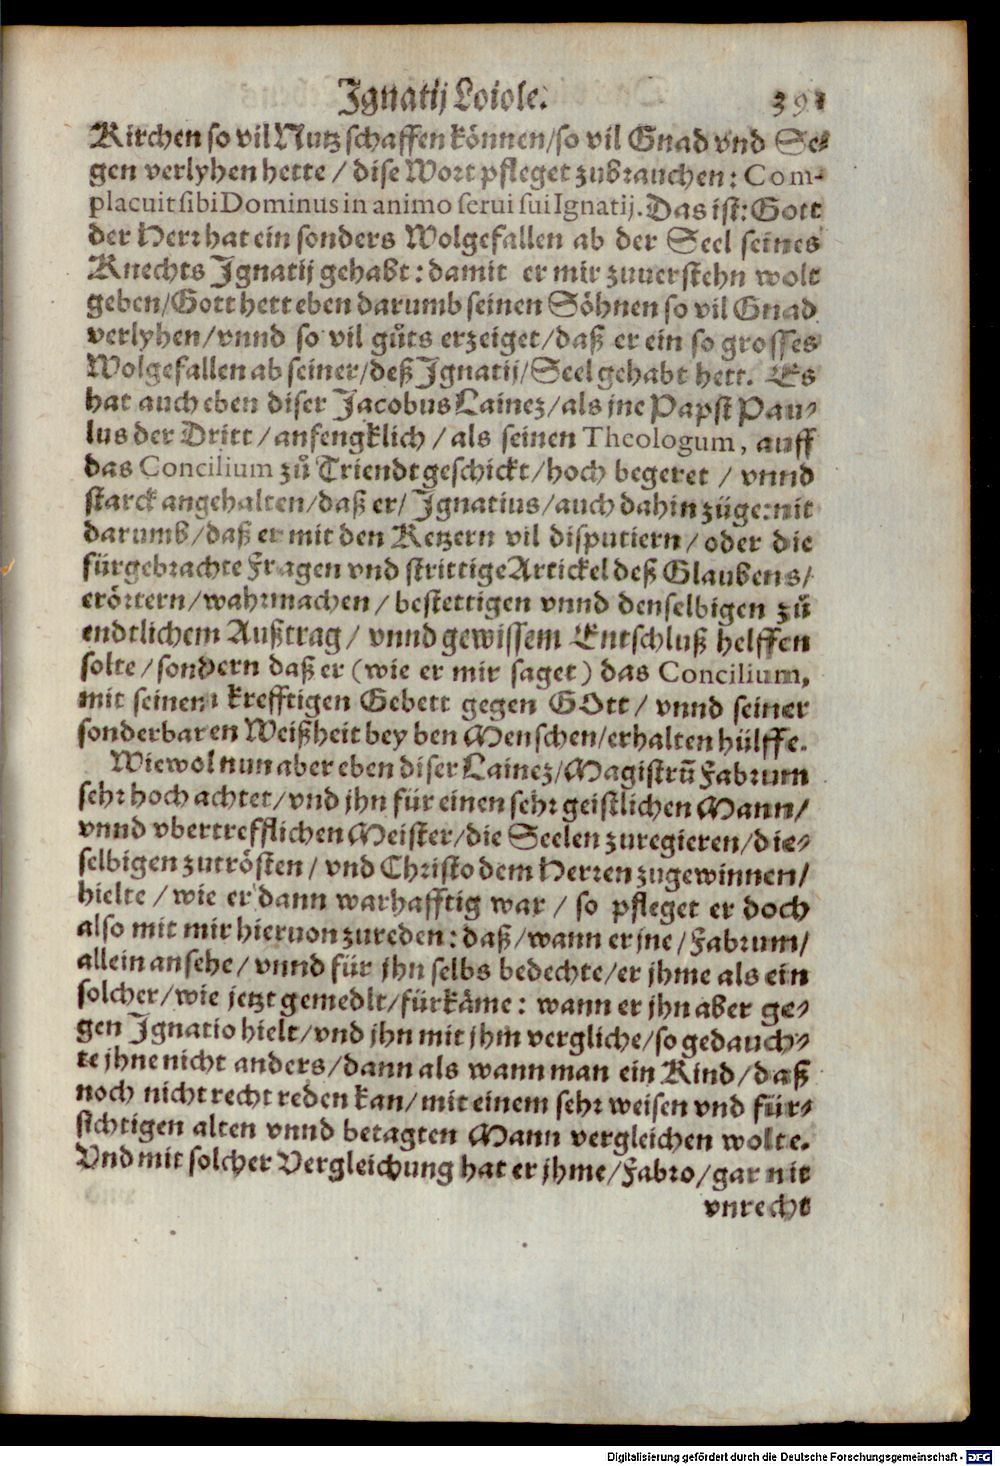 Ignatij Loiole. 391
Kirchen so vil Nutz schaffen können/so vil Gnad vnd Se-
gen verlyhen hette / dise Wort pfleget zubrauchen: Com-
placuit sibi Dominus in animo serui sui Ignatij. Das ist: Gott
der Herr hat ein sonders Wolgefallen ab der Seel seines
Knechts Ignatij gehabt: damit er mir zuuerstehn wolt
geben/Gott hett eben darumb seinen Söhnen so vil Gnad
verlyhen/vnnd so vil gůts erzeiget/daß er ein so grosses
Wolgefallen ab seiner/deß Ignatij/Seel gehabt hett. Es
hat auch eben diser Jacobus Lainez/als jne Papst Pau-
lus der Dritt / anfengklich / als seinen Theologum, auff
das Concilium zů Triendt geschickt/hoch begeret / vnnd
starck angehalten/daß er/ Ignatius/auch dahin züge: nit
darumb/daß er mit den Ketzern vil disputiern/oder die
fürgebrachte Fragen vnd strittige Artickel deß Glaubens/
erörtern/wahrmachen / bestettigen vnnd denselbigen zů
endtlichem Außtrag / vnnd gewissem Entschluß helffen
solte/sondern daß er (wie er mir saget) das Concilium,
mit seinem krefftigen Gebett gegen GOtt / vnnd seiner
sonderbaren Weißheit bey ben Menschen/erhalten hülffe.
Wiewol nun aber eben diser Lainez/Magistrū Fabrum
sehr hoch achtet/vnd jhn für einen sehr geistlichen Mann/
vnnd vbertrefflichen Meister/die Seelen zuregieren/die-
selbigen zutrösten / vnd Christo dem Herren zugewinnen/
hielte / wie er dann warhafftig war / so pfleget er doch
also mit mir hieruon zureden: daß/wann er jne/Fabrum/
allein ansehe / vnnd für jhn selbs bedechte/er jhme als ein
solcher/wie jetzt gemedlt/fürkäme: wann er jhn aber ge-
gen Ignatio hielt/vnd jhn mit jhm vergliche/so gedauch-
te jhne nicht anders/dann als wann man ein Kind/daß
noch nicht recht reden kan/mit einem sehr weisen vnd für-
sichtigen alten vnnd betagten Mann vergleichen wolte.
Vnd mit solcher Vergleichung hat er jhme/Fabro/gar nit
vnrecht
Digitalisierung gefördert durch die Deutsche Forschungsgemeinschaft - DFG